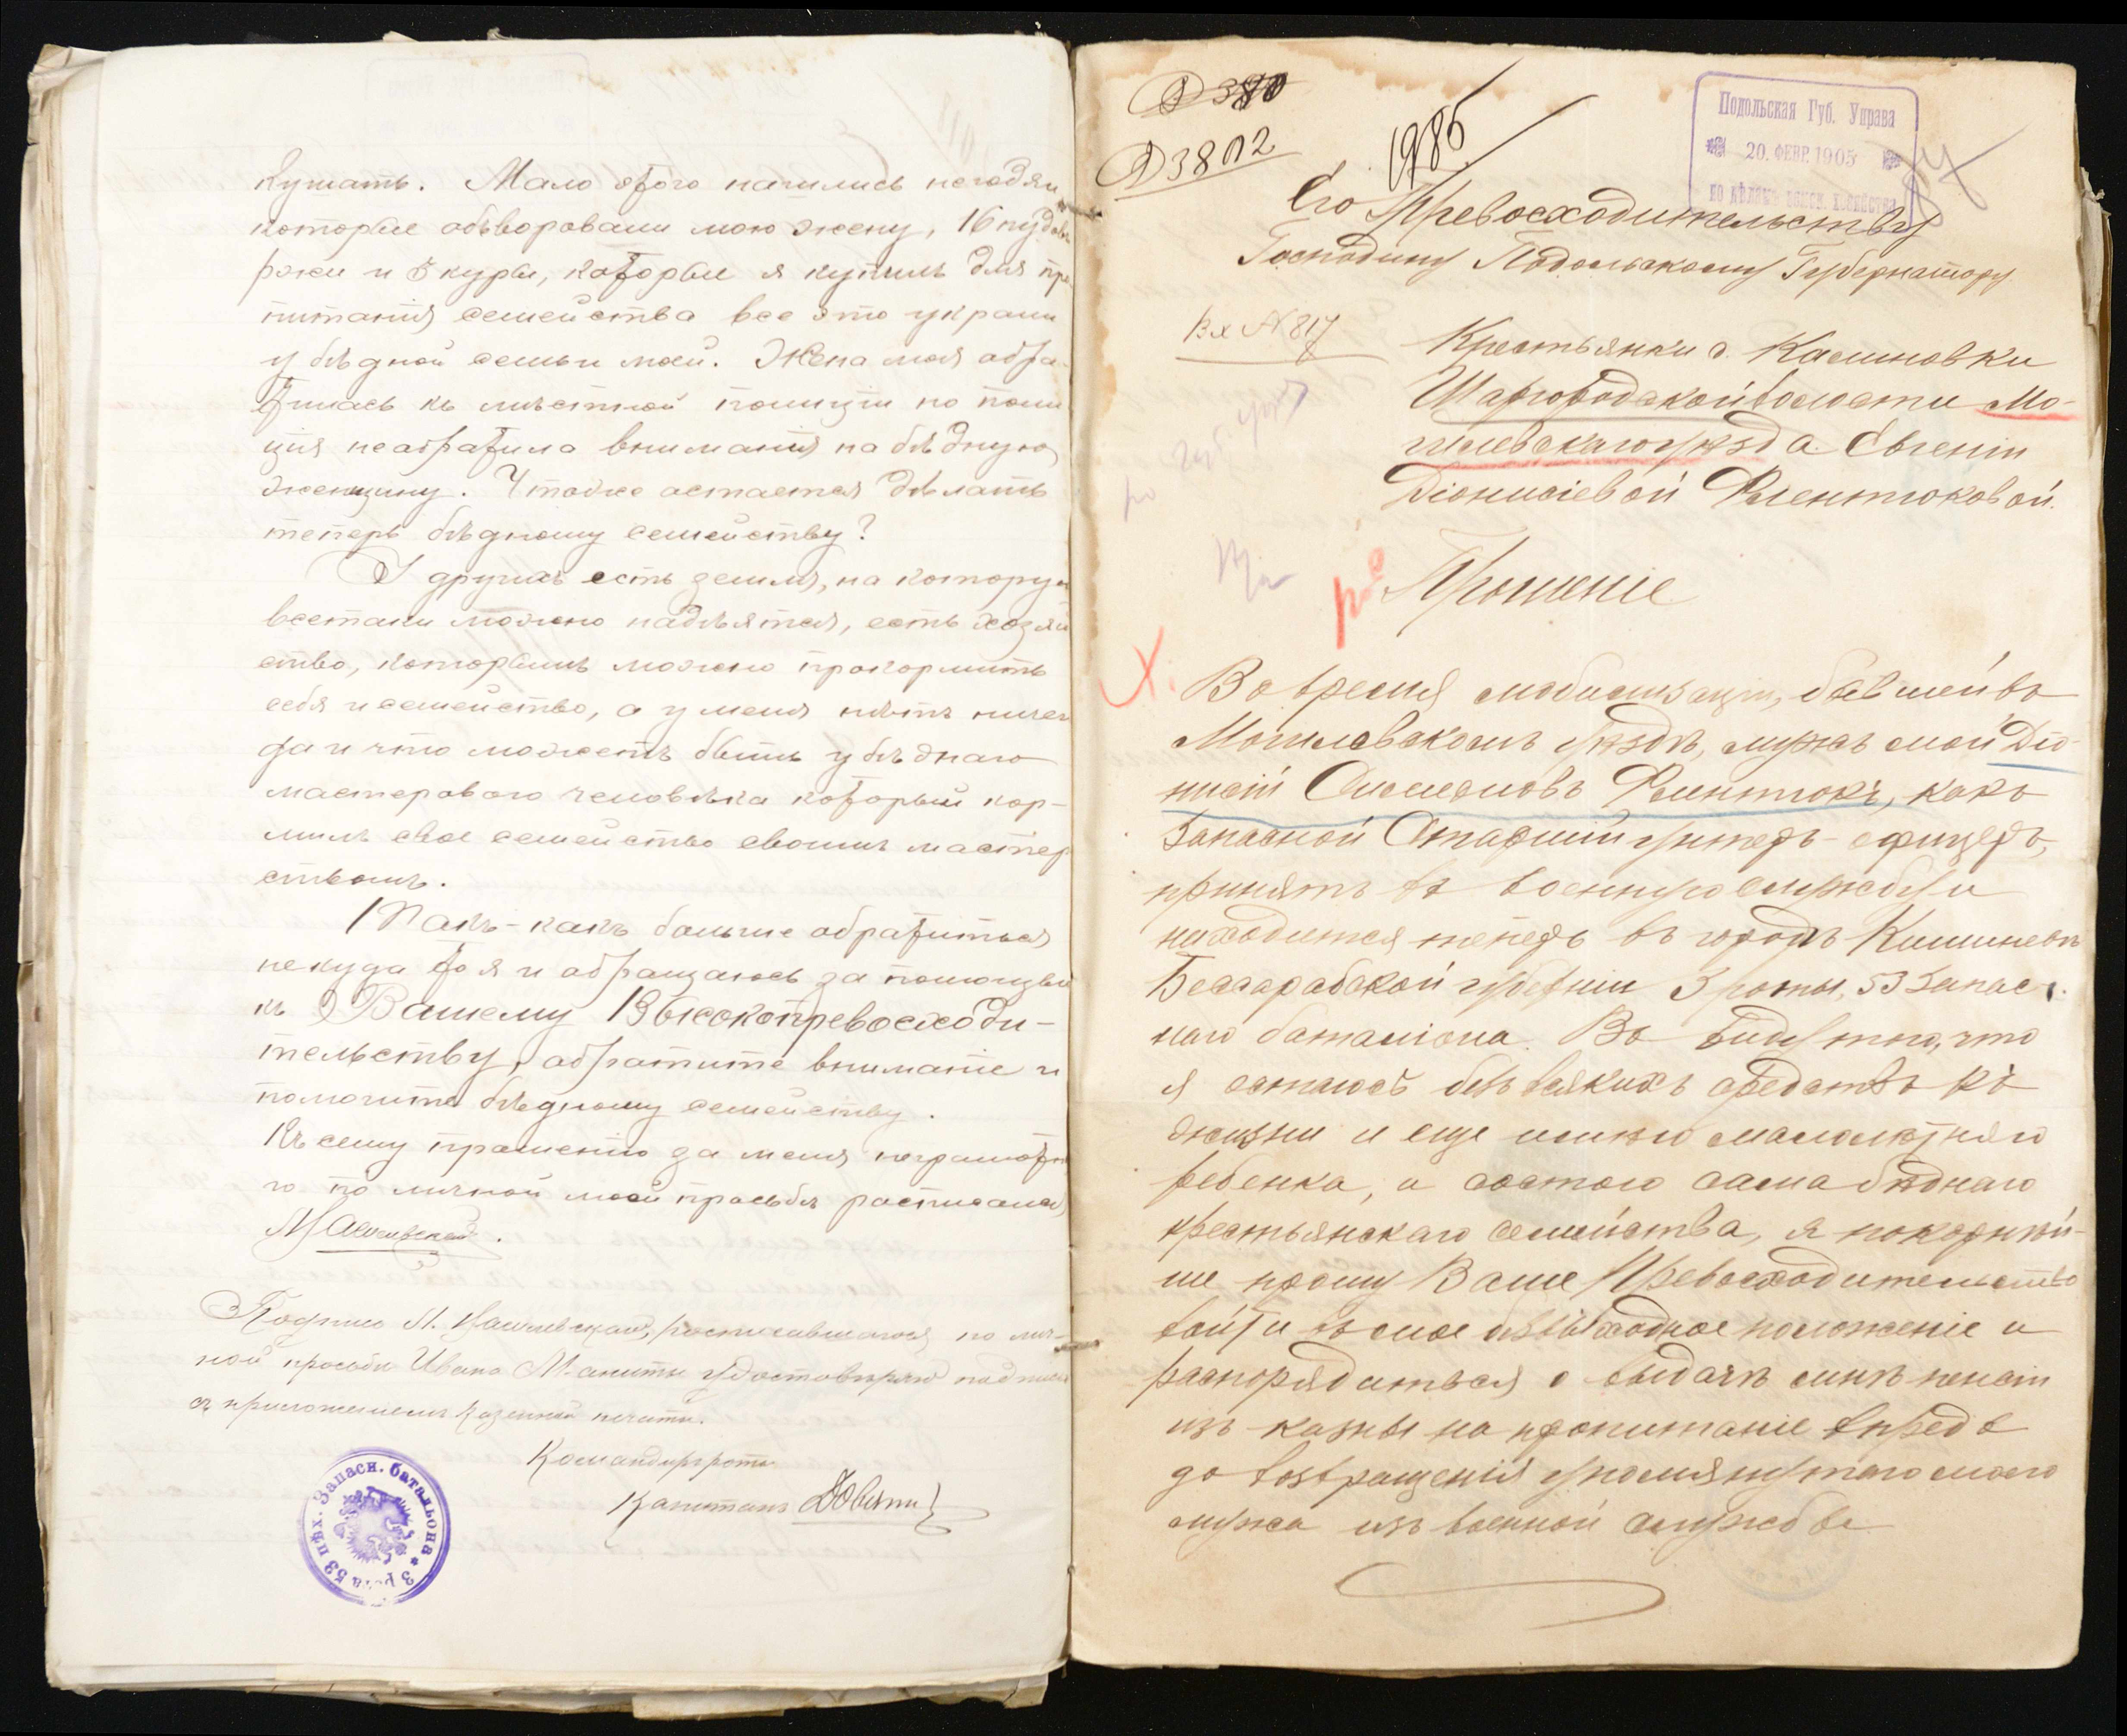 кушать. Мало этого нашлись негодяи
которые обворовали мою жену, 16 пудовъ
ржи и 5 куры, которые я купилъ для про
питанія семейства все это украли
у бѣдной семьи моей. Жена моя обра-
тилась къ мѣстной полиціи но поли
ція необратила вниманія на бѣдную
женщину. Чтоже остается дѣлать
теперь бѣдному семейству?
У другихъ есть земля, на которую
всетаки можно надѣятся, есть хозяй
ство, которымъ можно прокормить
себя и семейство, а у меня нѣтъ ничег
да и что можетъ быть у бѣднаго
мастерового человѣка который кор-
милъ свое семейство своимъ мастер
ствомъ.
Такъ-какъ больше обратиться
некуда то я и обращаюсь за помощью
къ Вашему Высокопревосходи-
тельству, обратите вниманіе и
помогите бѣдному семейству.
Къ сему прошенію за меня неграмотн
го по личной моей просьбѣ росписался
Подпись М. росписавшагося по лич-
ной просьбѣ Ивана удостовѣряю подписью
съ приложеніемъ казенной печати.
Командиръ роты
Капитанъ
3 рота 53 пѣх. Запасн. баталъона
Д 380
Д 3802
1985
Подольская Губ. Управа
20. ФЕВР. 1905
по дѣламъ земск. хозяйства
84
Его Превосходительству
Господину Подольскому Губернатору
Вх № 817
Крестьянки с. Калиновки
Шаргородской волости Мо-
гилевскаго уѣзда Евгеніи
Діонисіевой Флентюковой.
Прошеніе
Во время мобилизаціи, бывшей въ
Могилевскомъ уѣздѣ, мужъ мой Діо-
нисій Симеоновъ Флентюкъ, какъ
запасной Старшій унтеръ-офицеръ,
принятъ въ военную службу и
находится теперь въ городѣ Кишиневѣ
Бессарабской губерніи 3 роты, 53 Запас
наго баталіона. Въ виду того, что
я остаюсь безъ всякихъ средствъ къ
жизни и еще имѣю малолѣтняго
ребенка, и состою сама бѣднаго
крестьянскаго семейства, я покорнѣй-
ше прошу Ваше Превосходительство
войти въ мое безвыходное положеніе и
распорядиться о выдачѣ мнѣ пенсіи
изъ казны на пропитаніе впредь
до возвращенія упомянутаго моего
мужа изъ военной службы